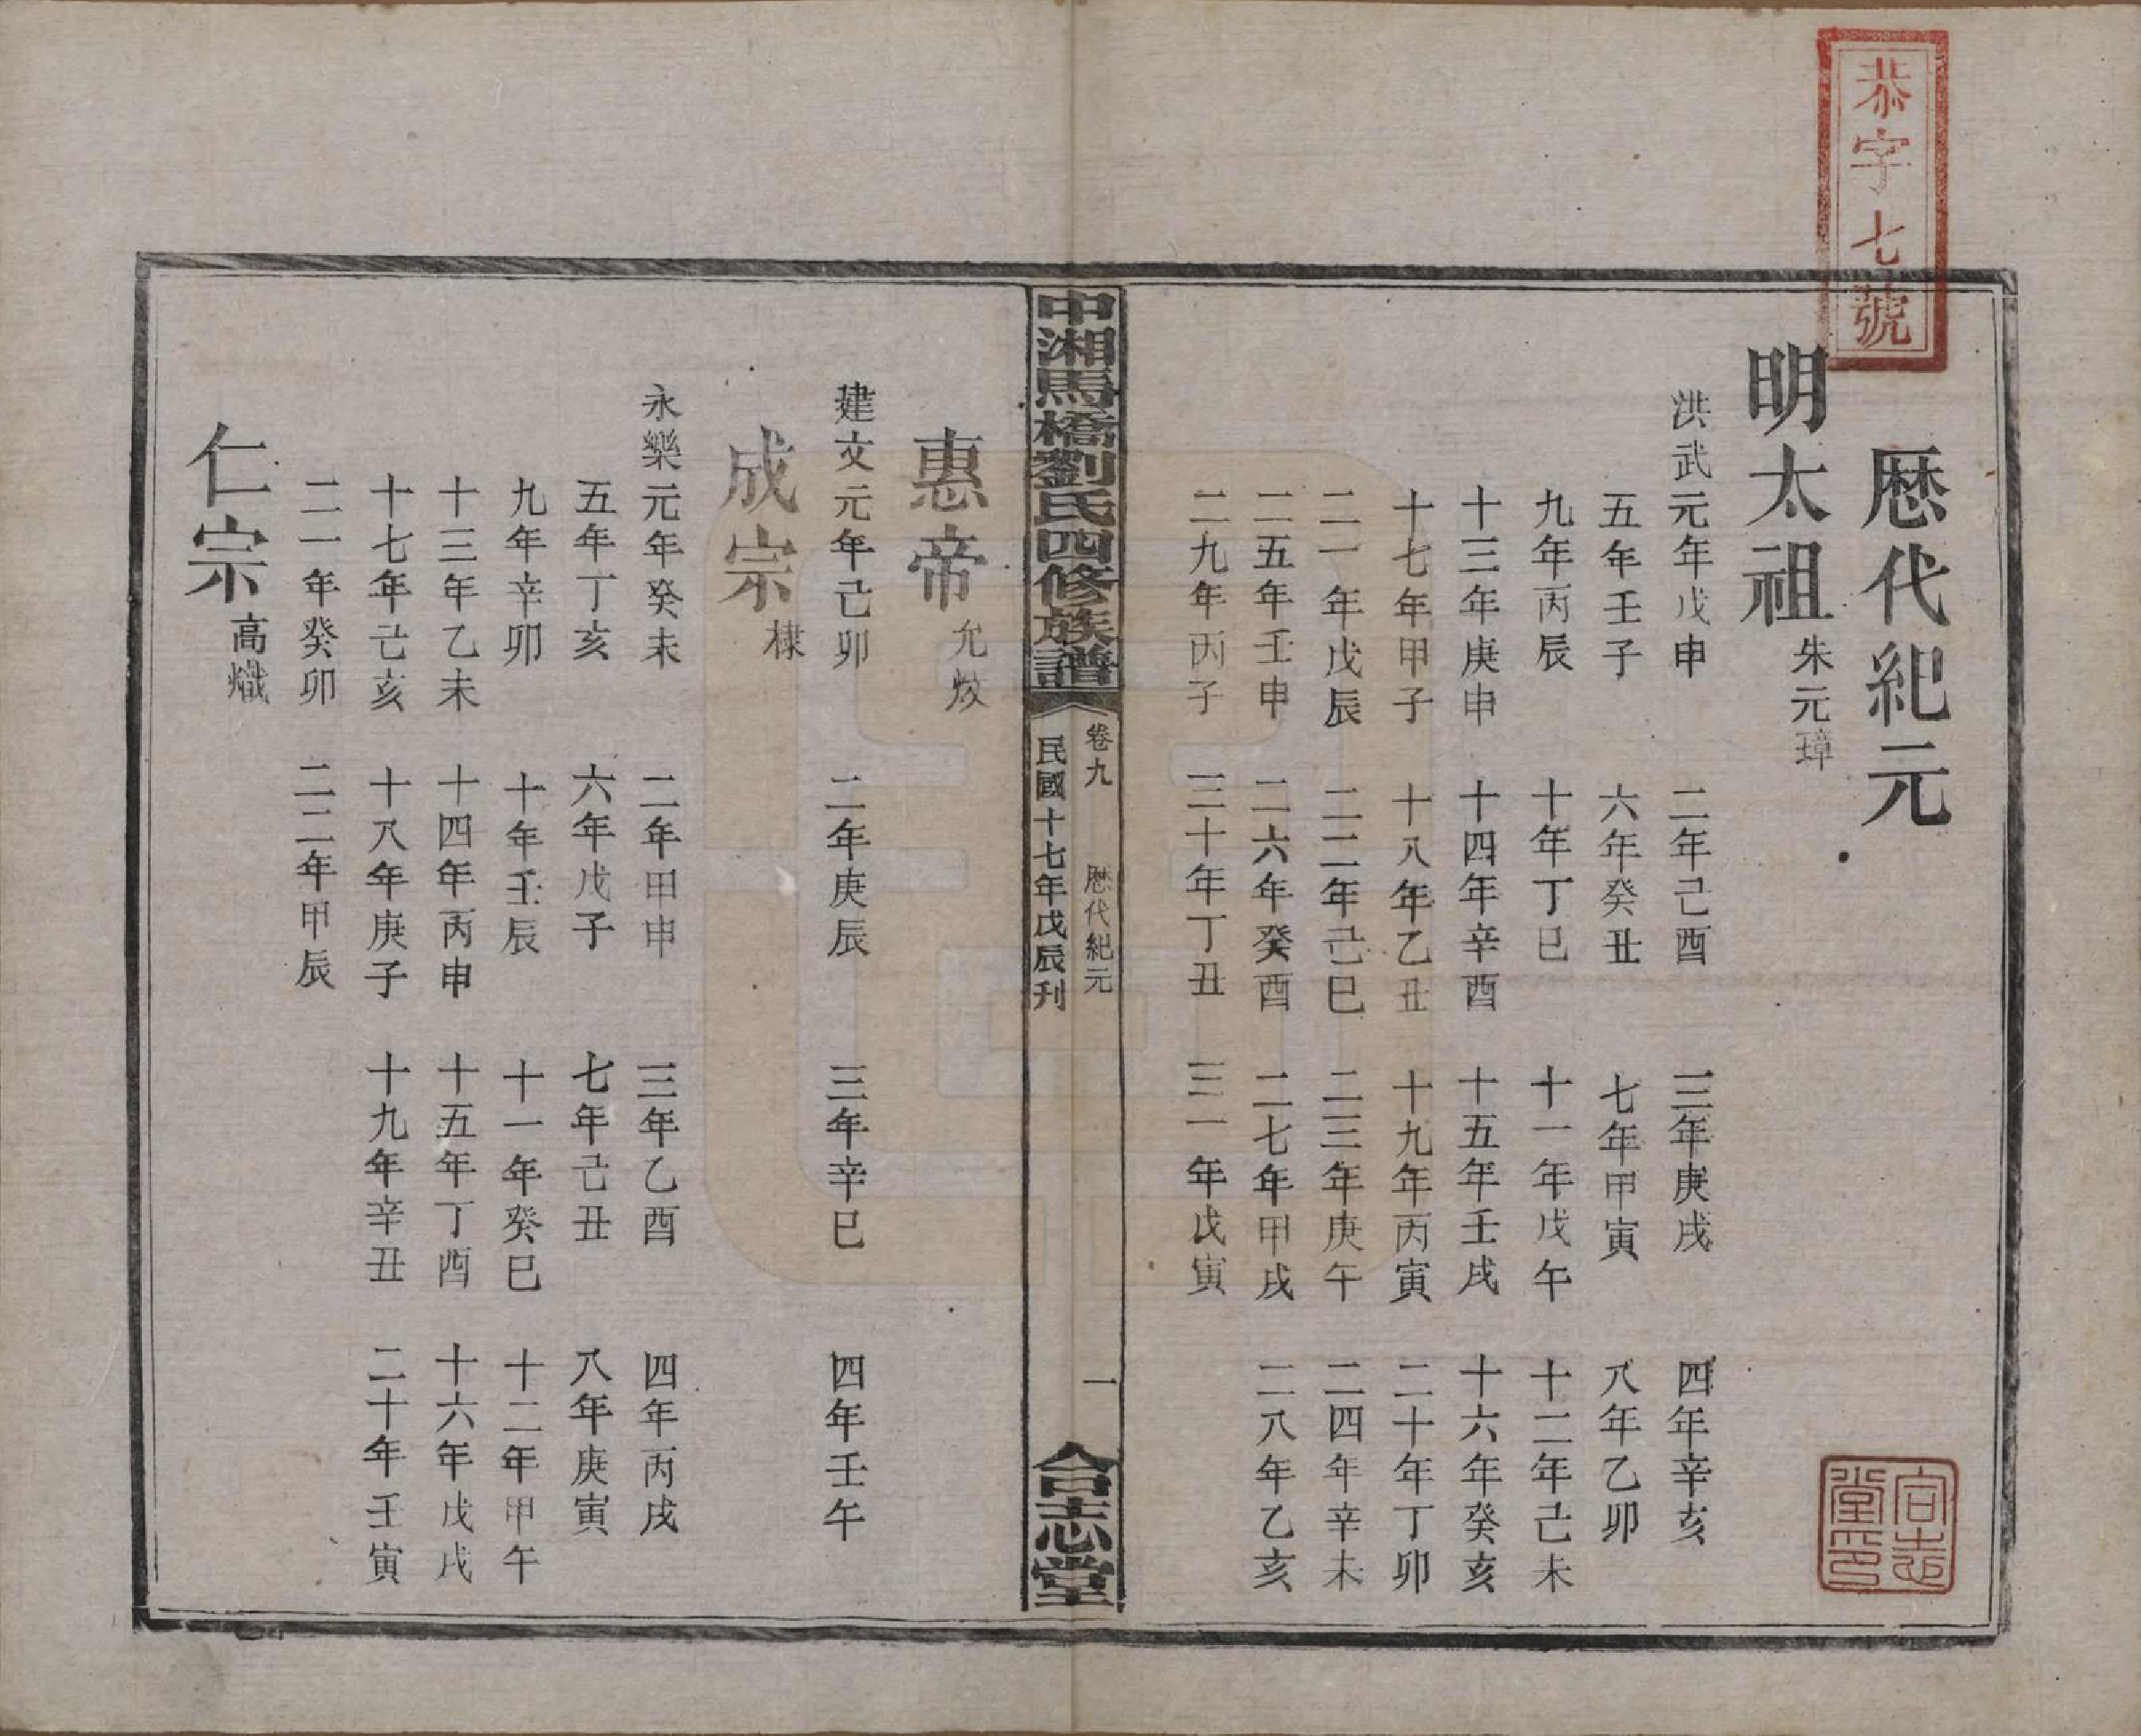 恭字七號
歴代紀元
明太祖朱元璋
洪武元年戊申 二年己酉 三年庚戌 四年辛亥
五年壬子 六年癸丑 七年甲寅 八年乙卯
九年丙辰 十年丁巳 十一年戊午 十二年己未
十三年庚申 十四年辛酉 十五年壬戌 十六年癸亥
十七年甲子 十八年乙丑 十九年丙寅 二十年丁卯
二一年戊辰 二二年己巳 二三年庚午 二四年辛未
二五年壬申 二六年癸酉 二七年甲戌 二八年乙亥
二九年丙子 三十年丁丑 三一年戊寅
合志堂印
中湘馬橋劉氏四修族譜
卷九 歴代紀元 一
民國十七年戊辰刊
合志堂
惠帝允炆
建文元年己卯 二年庚辰 三年辛巳 四年壬午
成宗棣
永樂元年癸未 二年甲申 三年乙酉 四年丙戌
五年丁亥 六年戊子 七年己丑 八年庚寅
九年辛卯 十年壬辰 十一年癸巳 十二年甲午
十三年乙未 十四年丙申 十五年丁酉 十六年戊戌
十七年己亥 十八年庚子 十九年辛丑 二十年壬寅
二一年癸卯 二二年甲辰
仁宗高熾